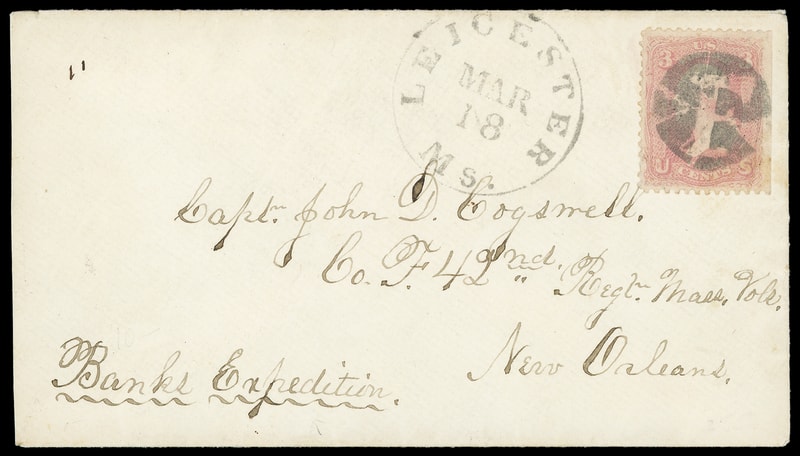 LEICESTER
MAR
18
Ms.
3 US 3
U CENTS S
Capt. John D. Cogswell.
Co. F. 42nd. Regt. Mass. Vols.
New Orleans.
Banks Expedition.